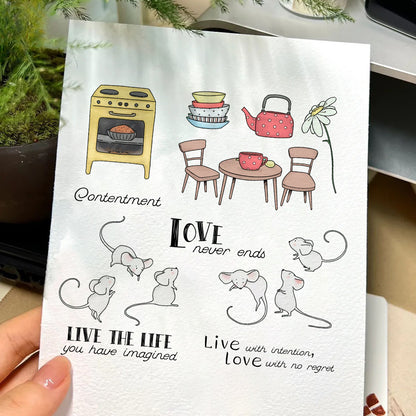 Contentment
LOVE
never ends
LIVE THE LIFE
you have imagined
Live with intention,
LOVE with no regret